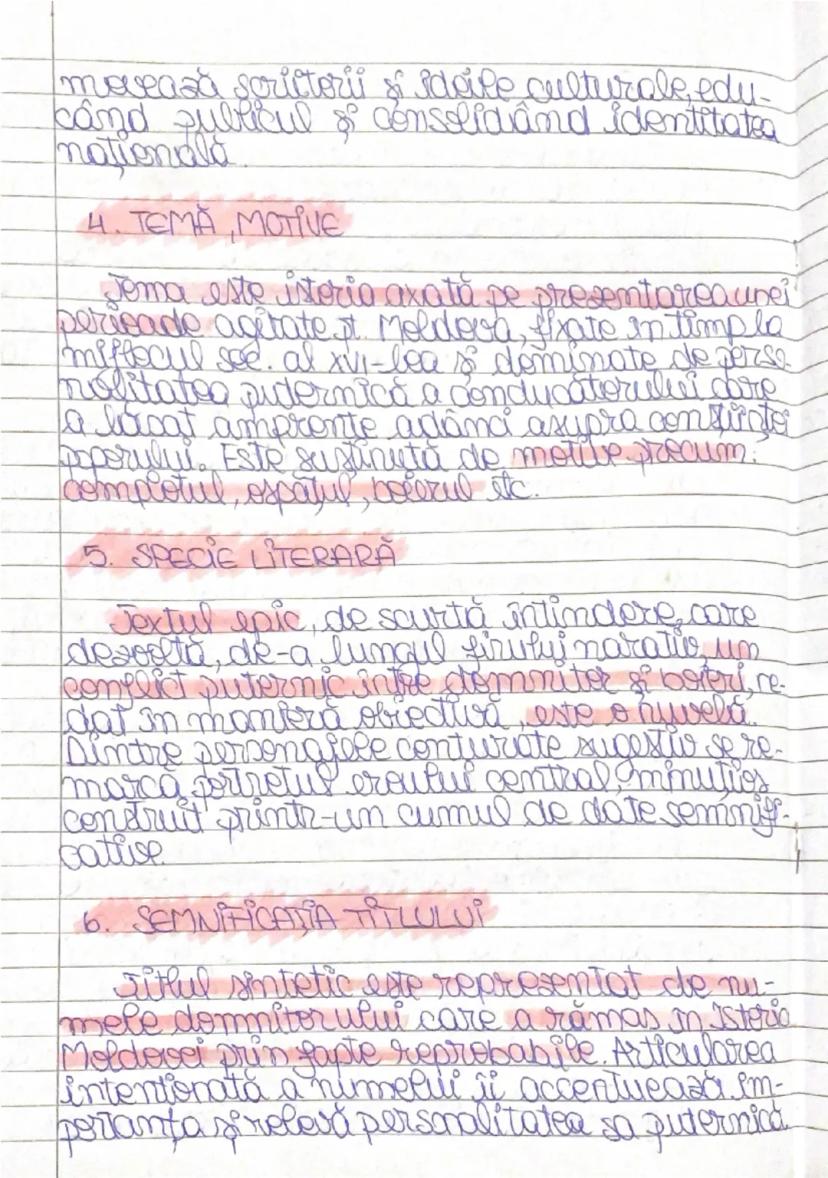 movează scriitorii și ideile culturale, edu-
când publicul și consolidând identitatea
națională
4. TEMĂ, MOTIVE
Tema este istoria axată pe prezentarea unei
perioade agitate pt. Moldova, fixate în timp la
mijlocul sec. al XVI-lea și dominate de perso-
nalitatea puternică a conducătorului care
a lăsat amprente adânci asupra conștiinței
poporului. Este susținută de motive precum:
complotul, ospățul, boierul etc.
5. SPECIE LITERARĂ
Textul epic, de scurtă întindere, care
dezvoltă, de-a lungul firului narativ, un
conflict puternic între domnitor și boieri, re-
dat în manieră obiectivă, este o nuvelă.
Dintre personajele conturate sugestiv se re-
marcă portretul eroului central, minuțios
construit printr-un cumul de date semnifi-
cative.
6. SEMNIFICAȚIA TITLULUI
Titlul sintetic este reprezentat de nu-
mele domnitorului care a rămas în istoria
Moldovei prin fapte reprobabile. Articularea
intenționată a numelui îi accentuează im-
portanța și relevă personalitatea sa puternică